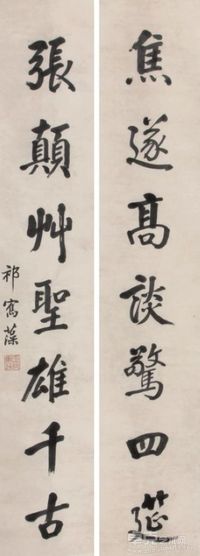 焦遂高談驚四筵
張顛艸聖雄千古
祁寯藻